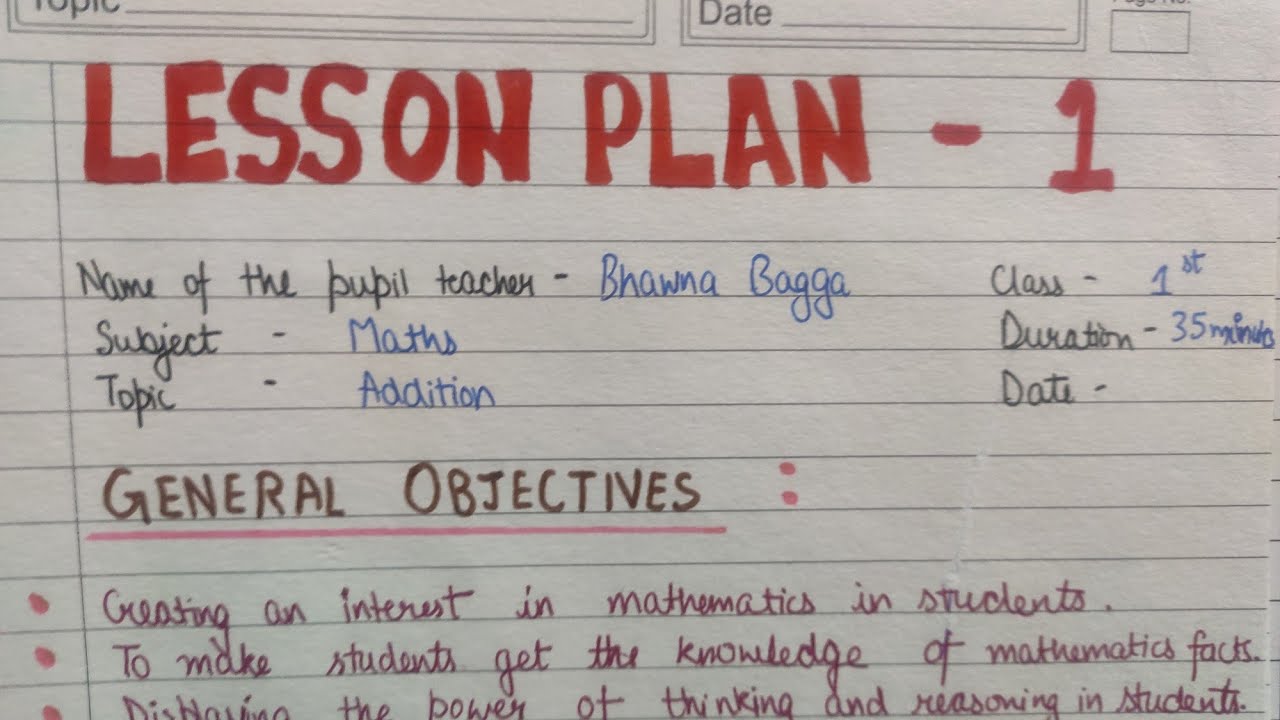 Topic
Date
Page No.
LESSON PLAN - 1
Name of the pupil teacher - Bhawna Bagga Class - 1st
Subject - Maths Duration - 35 minutes
Topic - Addition Date -
GENERAL OBJECTIVES :
• Creating an interest in mathematics in students.
• To make students get the knowledge of mathematics facts.
• Displaying the power of thinking and reasoning in students.